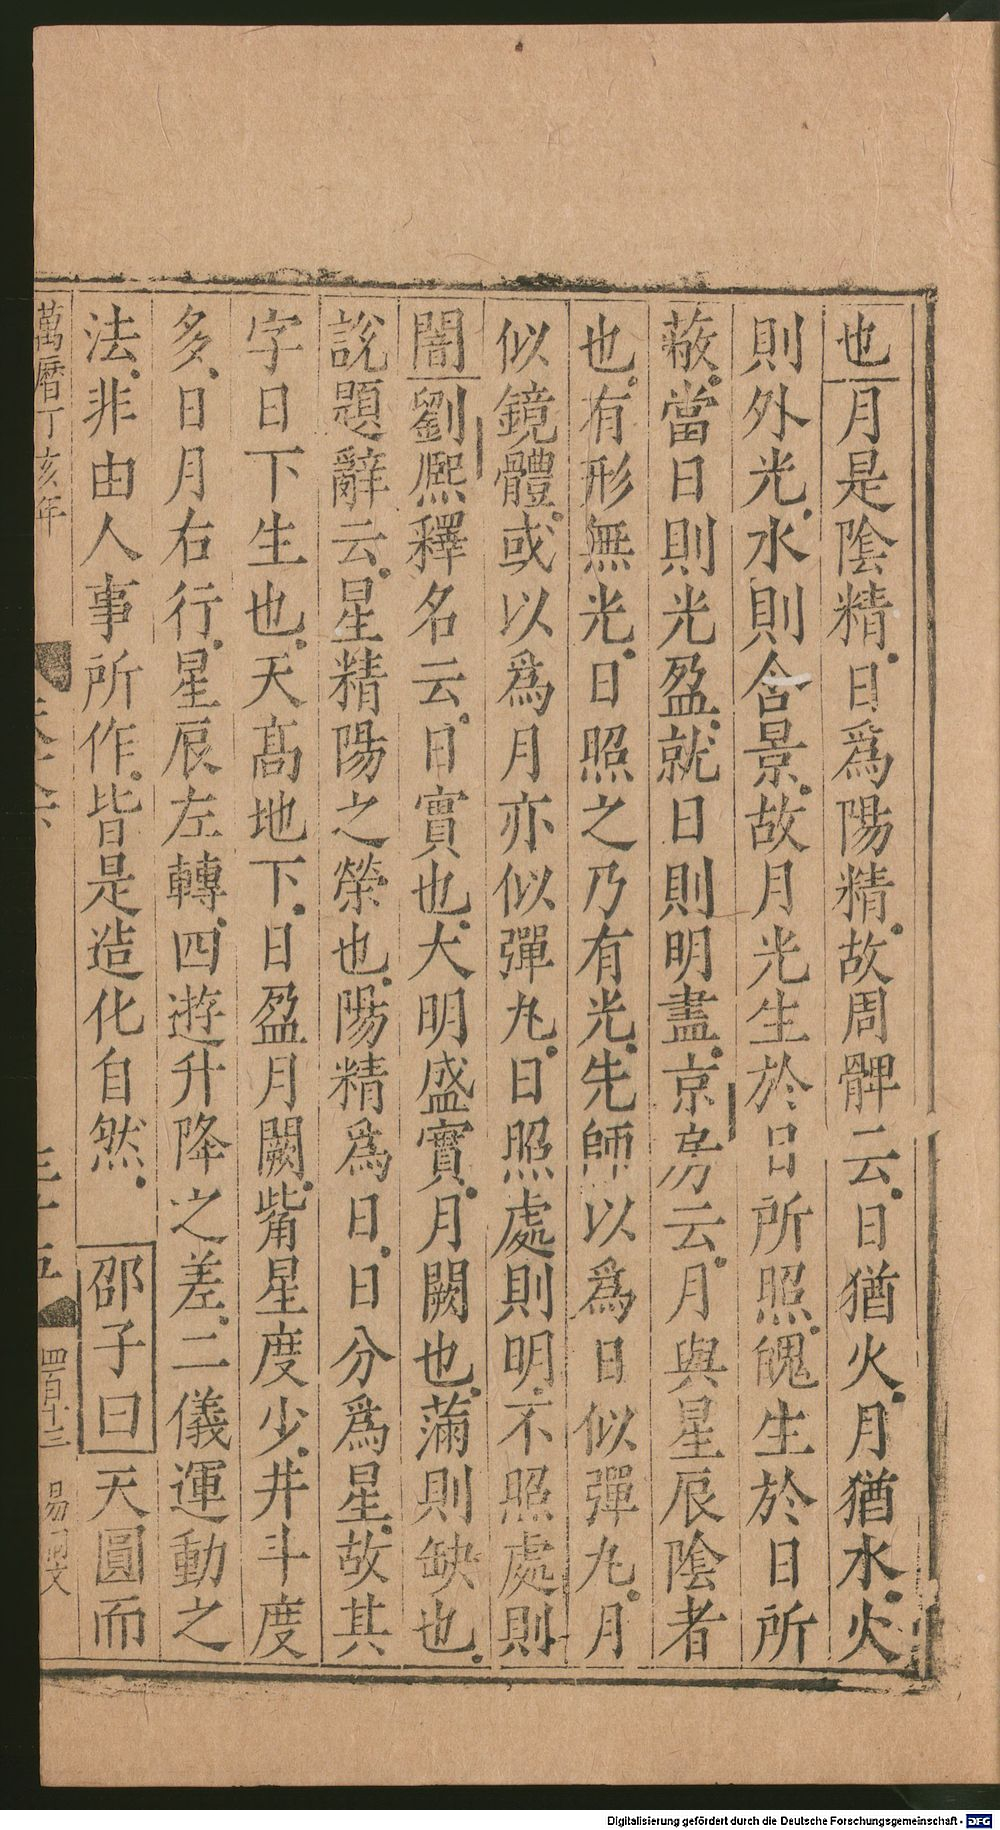 也月是陰精日爲陽精故周髀云日猶火月猶水火
則外光水則含景故月光生於日所照魄生於日所
蔽當日則光盈就日則明盡京房云月與星辰陰者
也有形無光日照之乃有光先師以爲日似彈丸月
似鏡體或以爲月亦似彈丸日照處則明不照處則
闇劉熈釋名云日實也大明盛實月闕也滿則缺也
說題辭云星精陽之榮也陽精爲日日分爲星故其
字日下生也天髙地下日盈月闕觜星度少井斗度
多日月右行星辰左轉四遊升降之差二儀運動之
法非由人事所作皆是造化自然 邵子曰天圓而
萬曆丁亥年
三十五
四百十三
Digitalisierung gefördert durch die Deutsche Forschungsgemeinschaft - DFG